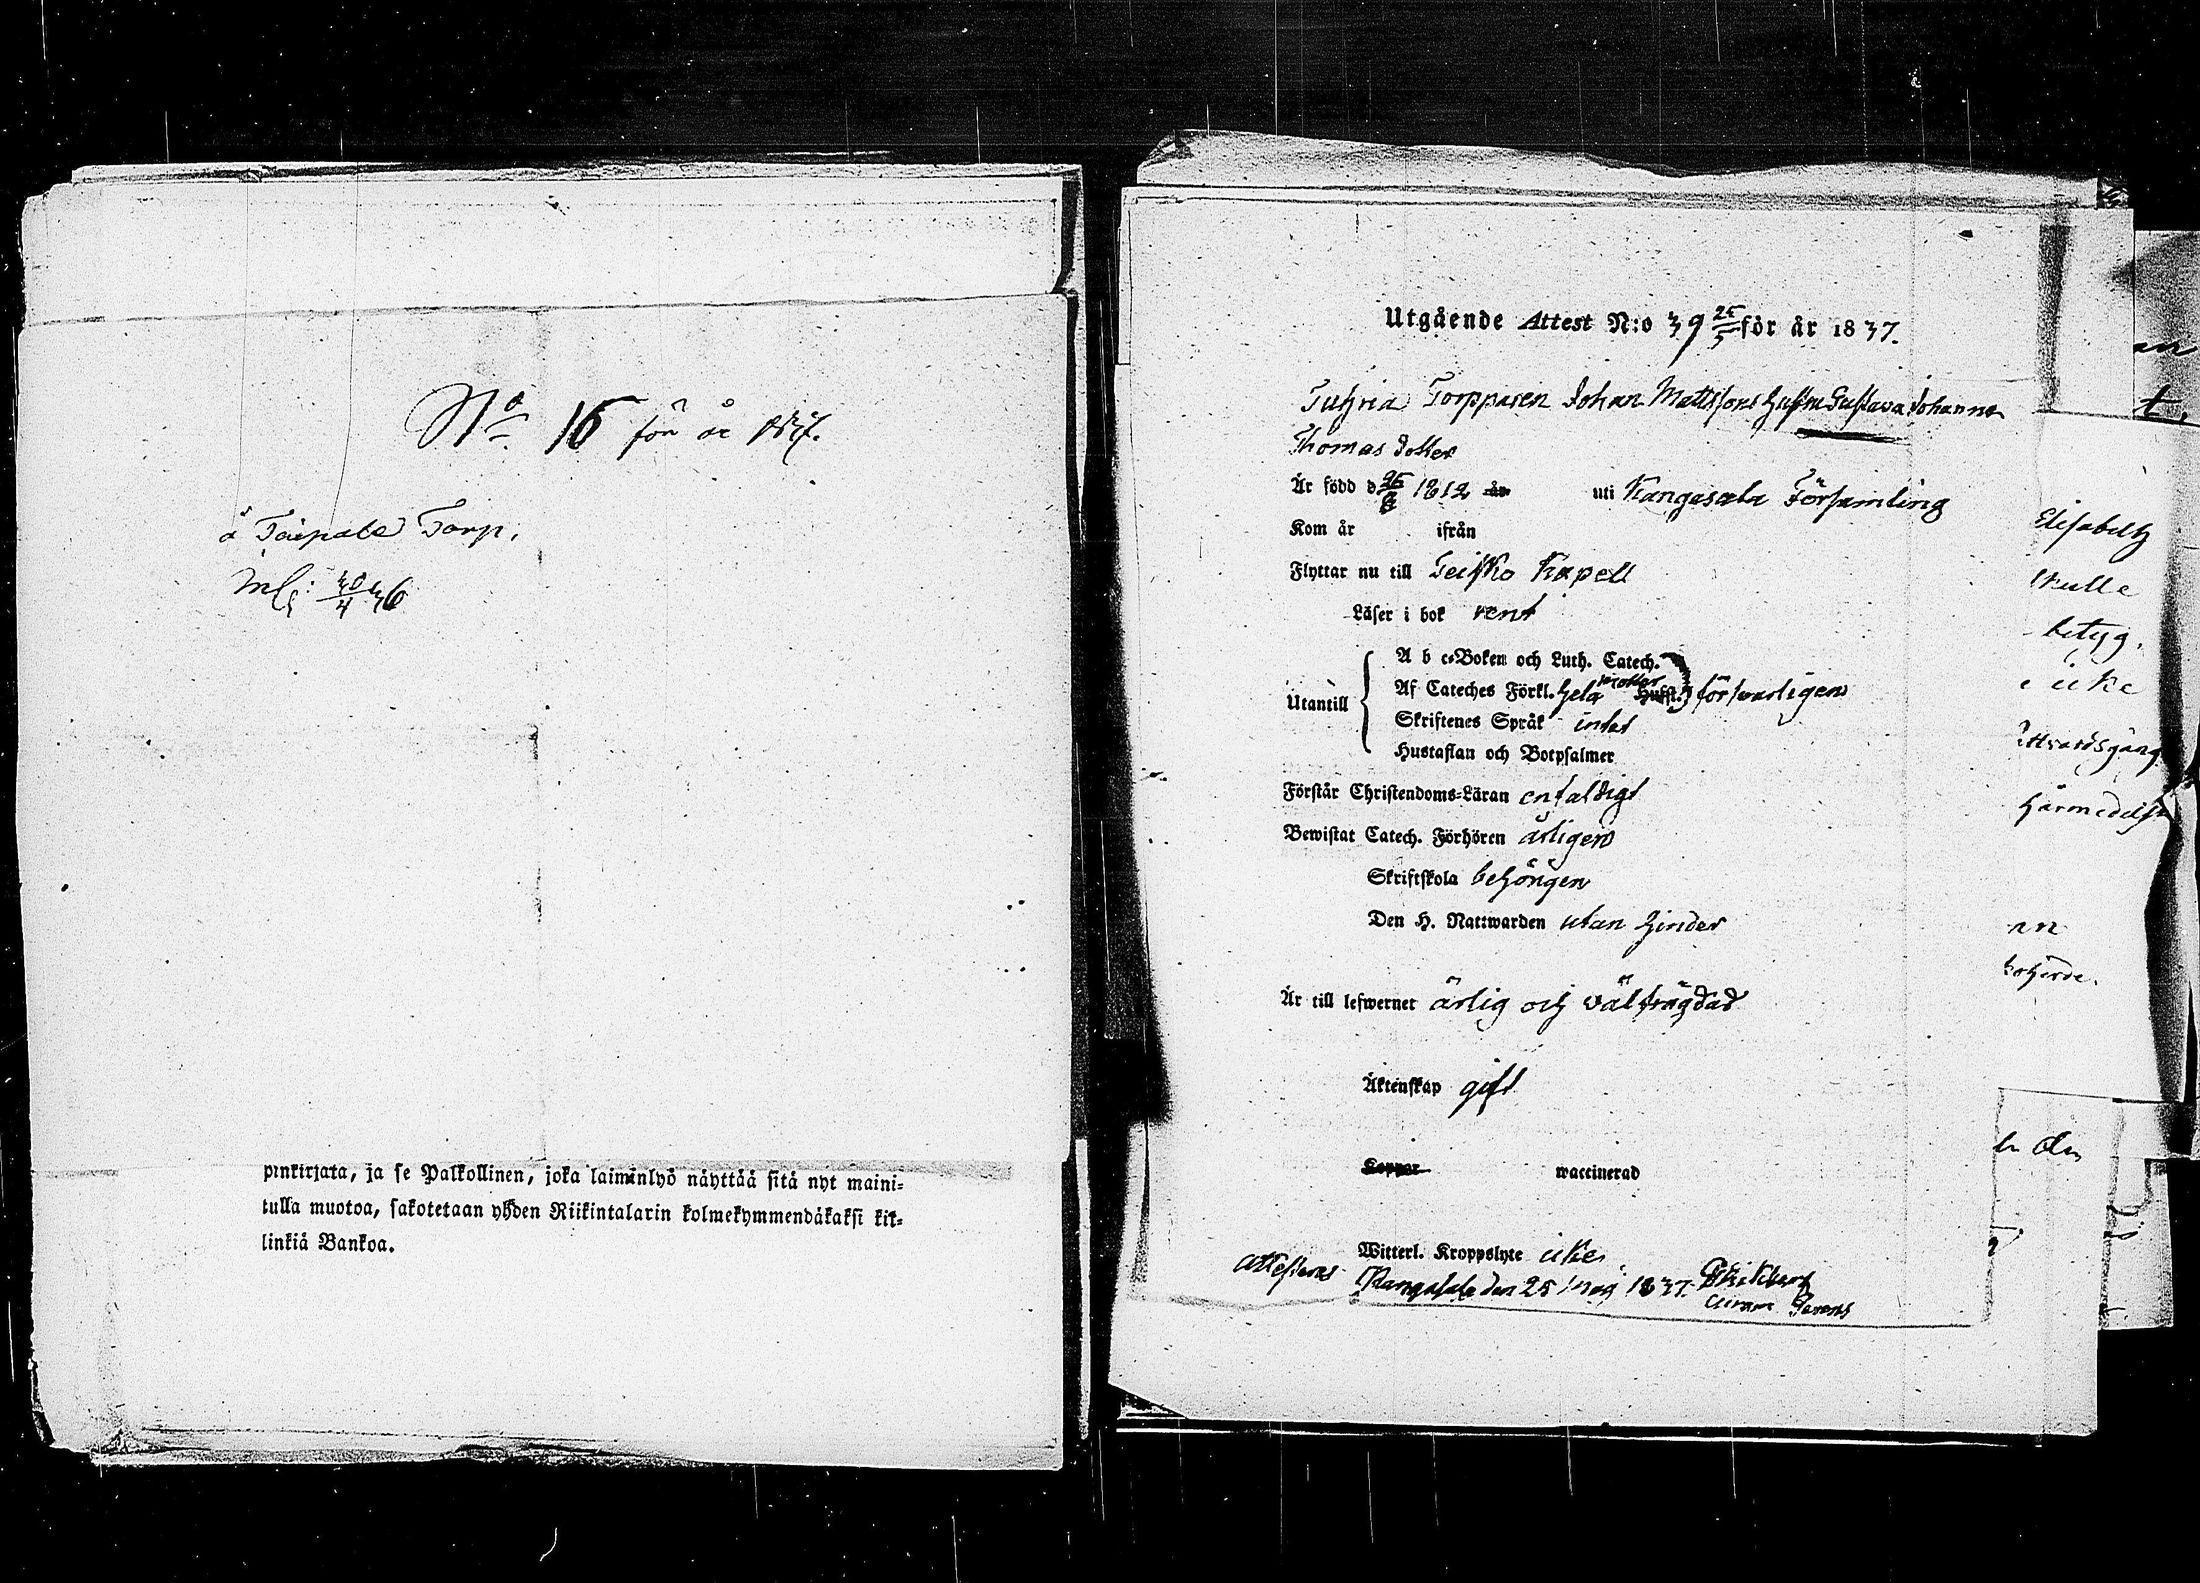 No 16 för år 1837.
å Taipale Torp.
Mlj: 30/4 36
pinkirjata, ja se Palkollinen, joka laiminlyö näyttää sitä nyt maini-
tulla muotoa, sakotetaan yhden Riikintalarin kolmekymmendäkaksi kit-
linkiä Bankoa.
Utgående Attest N:o 39 25/5 för år 1837.
Torpparen Johan Mattssons hustru Gustava Johanna
Thomas dotter
Är född d 26/8 1812 år uti Kangasala Församling
Kom år ifrån
Flyttar nu till Teisko Kapell
Läser i bok rent
A b c-Boken och Luth. Catech.
Af Cateches Förkl. hela
Utantill försvarligen
Skriftenes Språk intet
Hustaflan och Botpsalmer
Förstår Christendoms-Läran enfaldigt
Bewistat Catech. Förhören årligen
Skriftskola behörigen
Den H. Nattwarden utan hinder
Är till lefwernet ärlig och välfrägdad
Äktenskap gift
Koppor waccinerad
Witterl. Kroppslyte icke
Attesteras Kangasala den 25 Maj 1837.
Elisabeth
skulle
betyg.
icke
Nattvardsgång
härmedelst